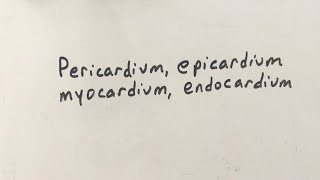 Pericardium, epicardium
myocardium, endocardium